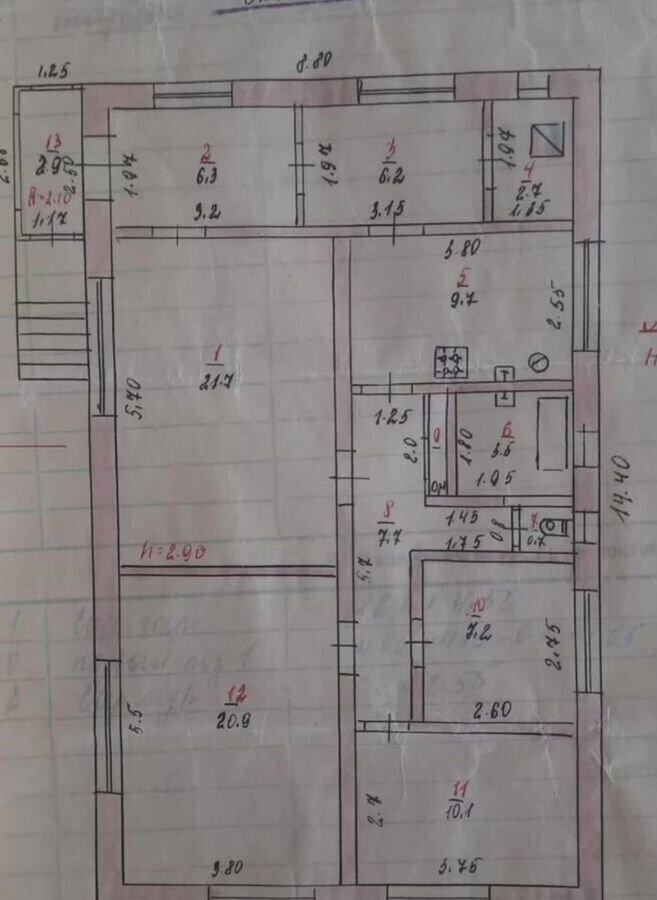 8.80
1.25
13
2.9
2.50
h=2.10
1.17
1.97
2
6.3
3.2
1.97
3
6.2
3.15
1.97
4
2.7
1.35
3.80
5
9.7
2.55
1
21.7
5.70
h=2.90
1.25
2.0
9
1.80
6
3.5
1.95
14.40
8
7.7
5.7
1.45
1.75
0.8
7
0.7
10
7.2
2.75
2.60
12
20.9
5.5
3.80
11
10.1
2.7
3.75